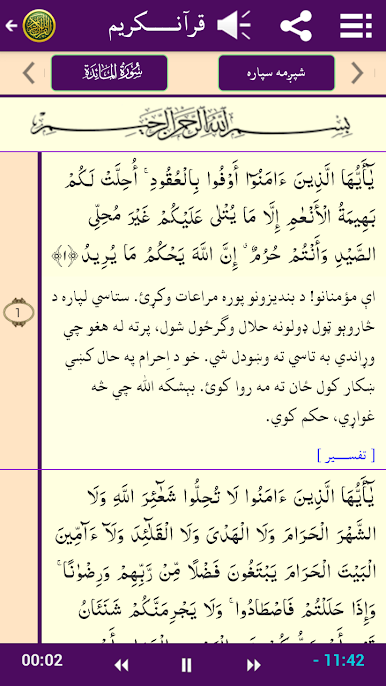 قرآنــــکریم
سُورَةُ المَائدَة
شپږمه سپاره
بِسْمِ ٱللَّهِ ٱلرَّحْمَٰنِ ٱلرَّحِيمِ
يَٰٓأَيُّهَا الَّذِينَ ءَامَنُوٓا أَوْفُوا بِالْعُقُودِ ۚ أُحِلَّتْ لَكُمْ
بَهِيمَةُ الْأَنْعَٰمِ إِلَّا مَا يُتْلَىٰ عَلَيْكُمْ غَيْرَ مُحِلِّى
الصَّيْدِ وَأَنْتُمْ حُرُمٌ ۗ إِنَّ اللَّهَ يَحْكُمُ مَا يُرِيدُ ﴿١﴾
اې مؤمنانو! د بنديزونو پوره مراعات وکړئ. ستاسي لپاره د
څاروېو ټول ډولونه حلال وګرځول شول، پرته له هغو چي
وړاندي به تاسي ته وښودل شي. خو د اِحرام په حال کښي
ښکار کول ځان ته مه روا کوئ. بېشکه الله چي څه
غواړي، حکم کوي.
1
[ تفســــير ]
يَٰٓأَيُّهَا الَّذِينَ ءَامَنُوا لَا تُحِلُّوا شَعَٰٓئِرَ اللَّهِ وَلَا
الشَّهْرَ الْحَرَامَ وَلَا الْهَدْىَ وَلَا الْقَلَٰٓئِدَ وَلَآ ءَآمِّينَ
الْبَيْتَ الْحَرَامَ يَبْتَغُونَ فَضْلًا مِّنْ رَّبِّهِمْ وَرِضْوَٰنًا ۚ
وَإِذَا حَلَلْتُمْ فَاصْطَادُوا ۚ وَلَا يَجْرِمَنَّكُمْ شَنَـَٔانُ
00:02
- 11:42